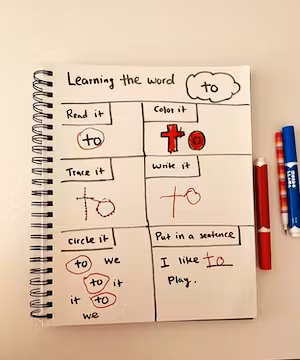 Learning the word to
Read it
to
Color it
to
Trace it
to
Write it
to
Circle it
to we
to it
it to
we
Put in a sentence
I like to
Play.